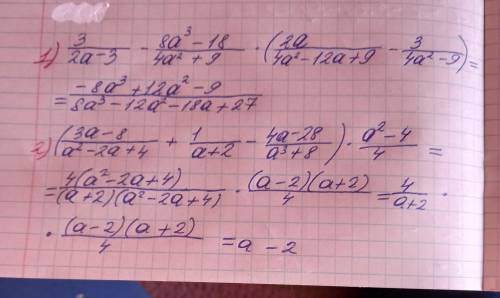 1) 3/(2a-3) - (8a³-18)/(4a²+9) · (2a/(4a²-12a+9) - 3/(4a²-9)) =
= (-8a³+12a²-9)/(8a³-12a²-18a+27)
2) ((3a-8)/(a²-2a+4) + 1/(a+2) - (4a-28)/(a³+8)) · (a²-4)/4 =
= 4(a²-2a+4)/((a+2)(a²-2a+4)) · (a-2)(a+2)/4 = 4/(a+2) ·
· (a-2)(a+2)/4 = a - 2